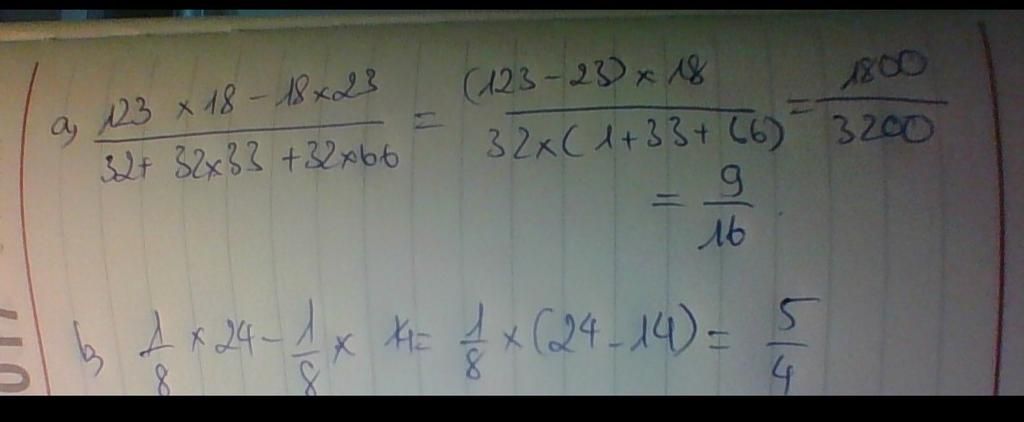 a, 123 × 18 - 18 × 23 / 32 + 32 × 33 + 32 × 66 = (123 - 23) × 18 / 32 × (1 + 33 + 66) = 1800 / 3200
= 9 / 16
b, 1/8 × 24 - 1/8 × 14 = 1/8 × (24 - 14) = 5/4